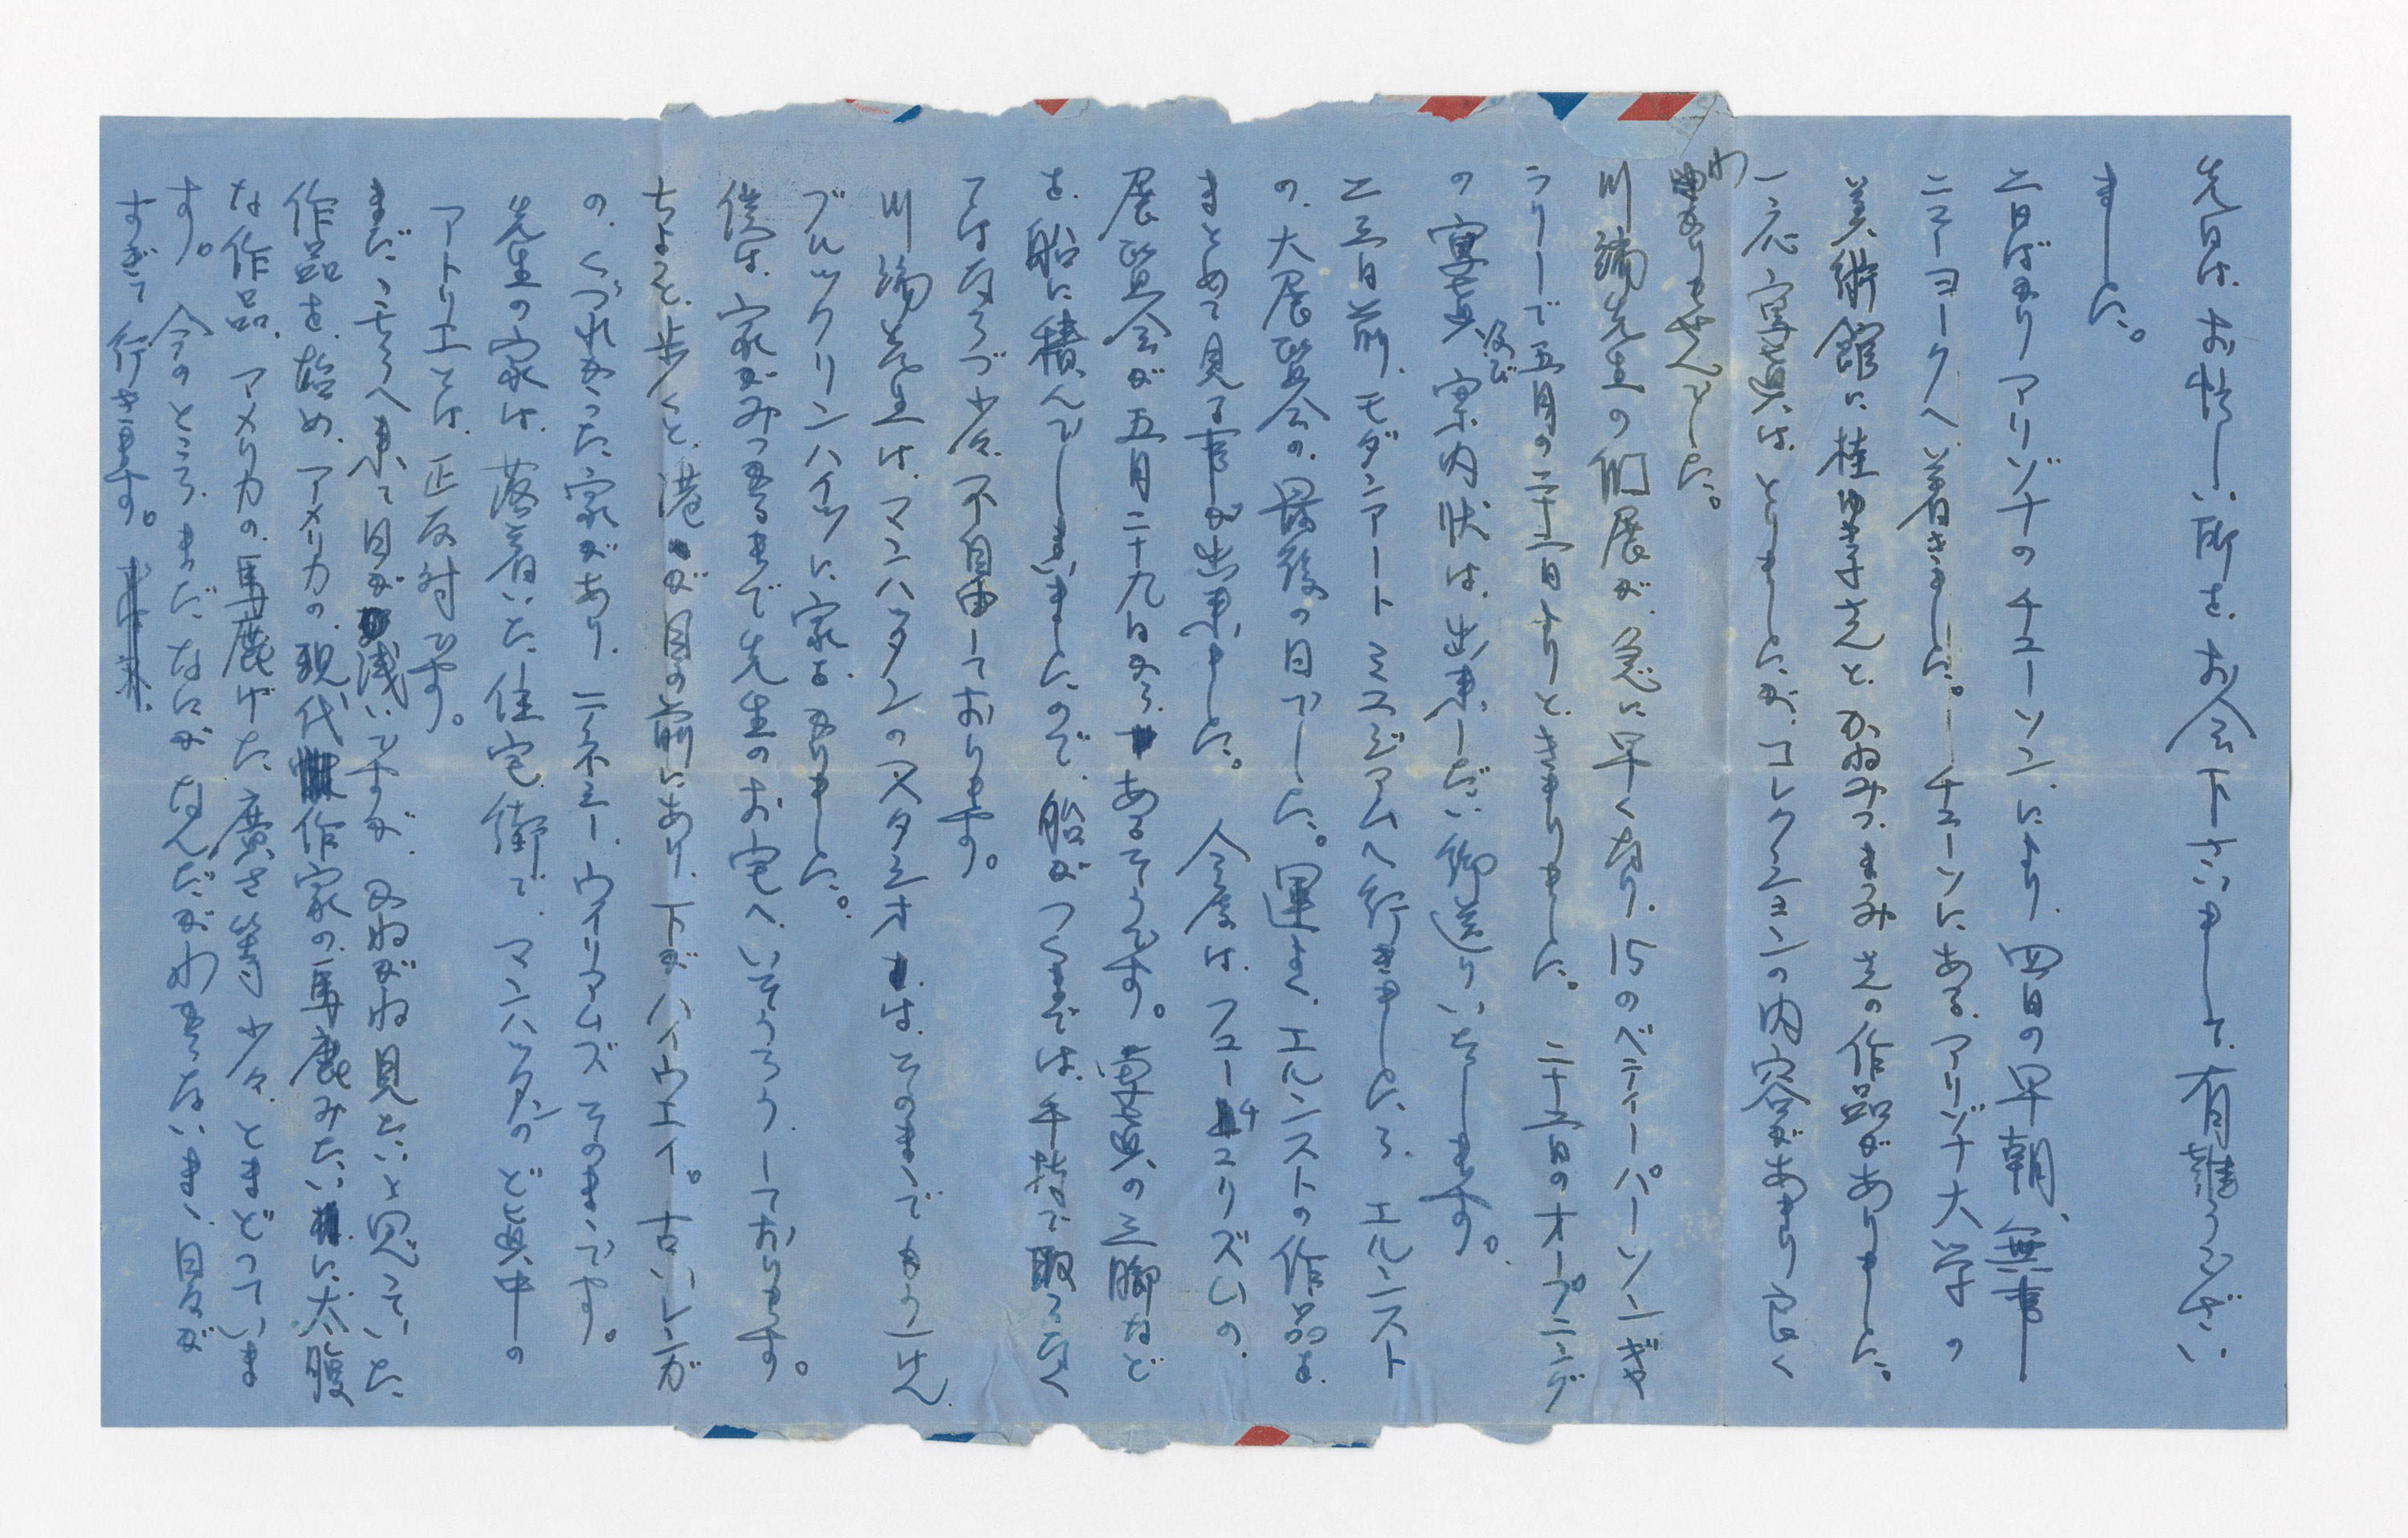 先日はお忙しい所を、お会下さいまして、有難うござい
ました。
二日ばかりアリゾナのチューソンにより、四日の早朝、無事
ニューヨークへ着きました。チューソンにある、アリゾナ大学の
美術館に桂ゆき子さんと、かわみつ、まつみさんの作品がありました。
一応写真はとりましたが、コレクションの内容があまり良く
わかりませんでした。
川端先生の個展が急に早くなり、15のベティーパーソンギャ
ラリーで五月の二十六日よりときまりました。二十五日のオープニング
の写真及び案内状は、出来しだい御送りいたします。
二三日前、モダンアートミュジアムへ行きましたら、エルンスト
の、大展覧会の最後の日でした。運よく、エルンストの作品を
まとめて見る事が出来ました。今度は、フューチュリズムの
展覧会が五月二十九日から、あるそうです。写真の三脚など
を、船に積んでしまいましたので、船がつくまでは、手持で取るしかなく
てはならづ少々不自由しております。
川端先生は、マンハッタンのスタジオは、そのままでもう一けん
ブルックリンハイツに家をかりました。
僕は、家がみつかるまで先生のお宅へいそうろうしております。
ちょっと歩くと、港が目の前にあり、下がハイウエイ。古いレンガ
の、くづれかった家があり、テネシー、ウイリアムズそのままです。
先生の家は、落着いた住宅街で、マンハッタンのど真中の
アトリエとは、正反対です。
まだこちらへ来て日が浅いですが、かねがね見たいと思っていた
作品を、始め、アメリカの現代作家の馬鹿みたいに大胆
な作品、アメリカの、馬鹿げた広さ等、少々、とまどっていま
す。今のところ、まだ、なにがなんだかわからないまゝ日々が
すぎて行きます。